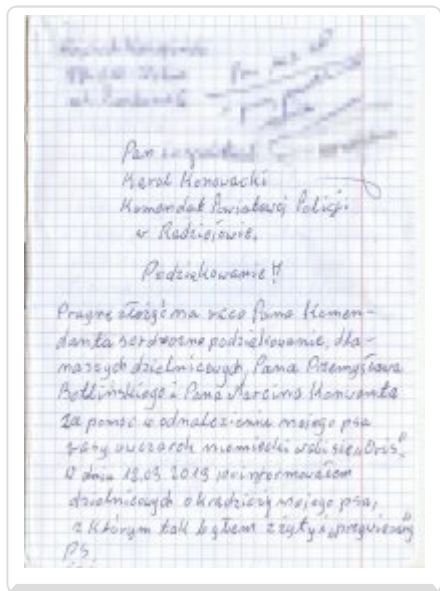 Pan
Karol Konowacki
Komendat Powiatowej Policji
w Radziejowie.
Podziękowanie!!
Pragnę złożyć na ręce Pana Komen-
danta serdeczne podziękowanie, dla
naszych dzielnicowych, Pana Przemysława
i Pana Marcina
za pomoc w odnalezieniu mojego psa
rasy owczarek niemiecki wabi się
W dniu 12.03.2019 poinformowałem
dzielnicowych o kradzieży mojego psa,
z którym tak byłem zżyty i
PS.